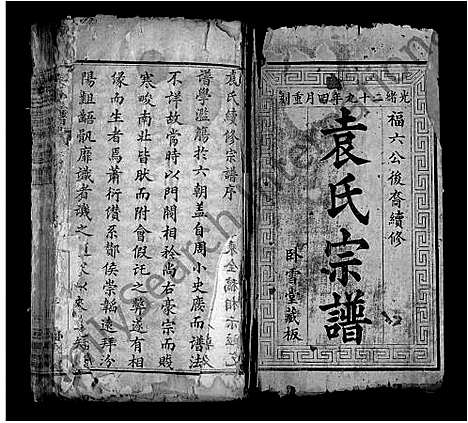 光緒二十九年四月重刻
福六公後裔續修
袁氏宗譜
卧雪堂藏板
袁氏續修宗譜序
譜學濫觴於六朝蓋自周小史廢而譜法
不詳故當時以門閥相矜尚右豪宗而賤
寒畯南北皆然而附會假託之弊遂有相
緣而生者焉蕭衍儹系鄼侯崇韜遠拜汾
陽齟齬骩靡識者譏之